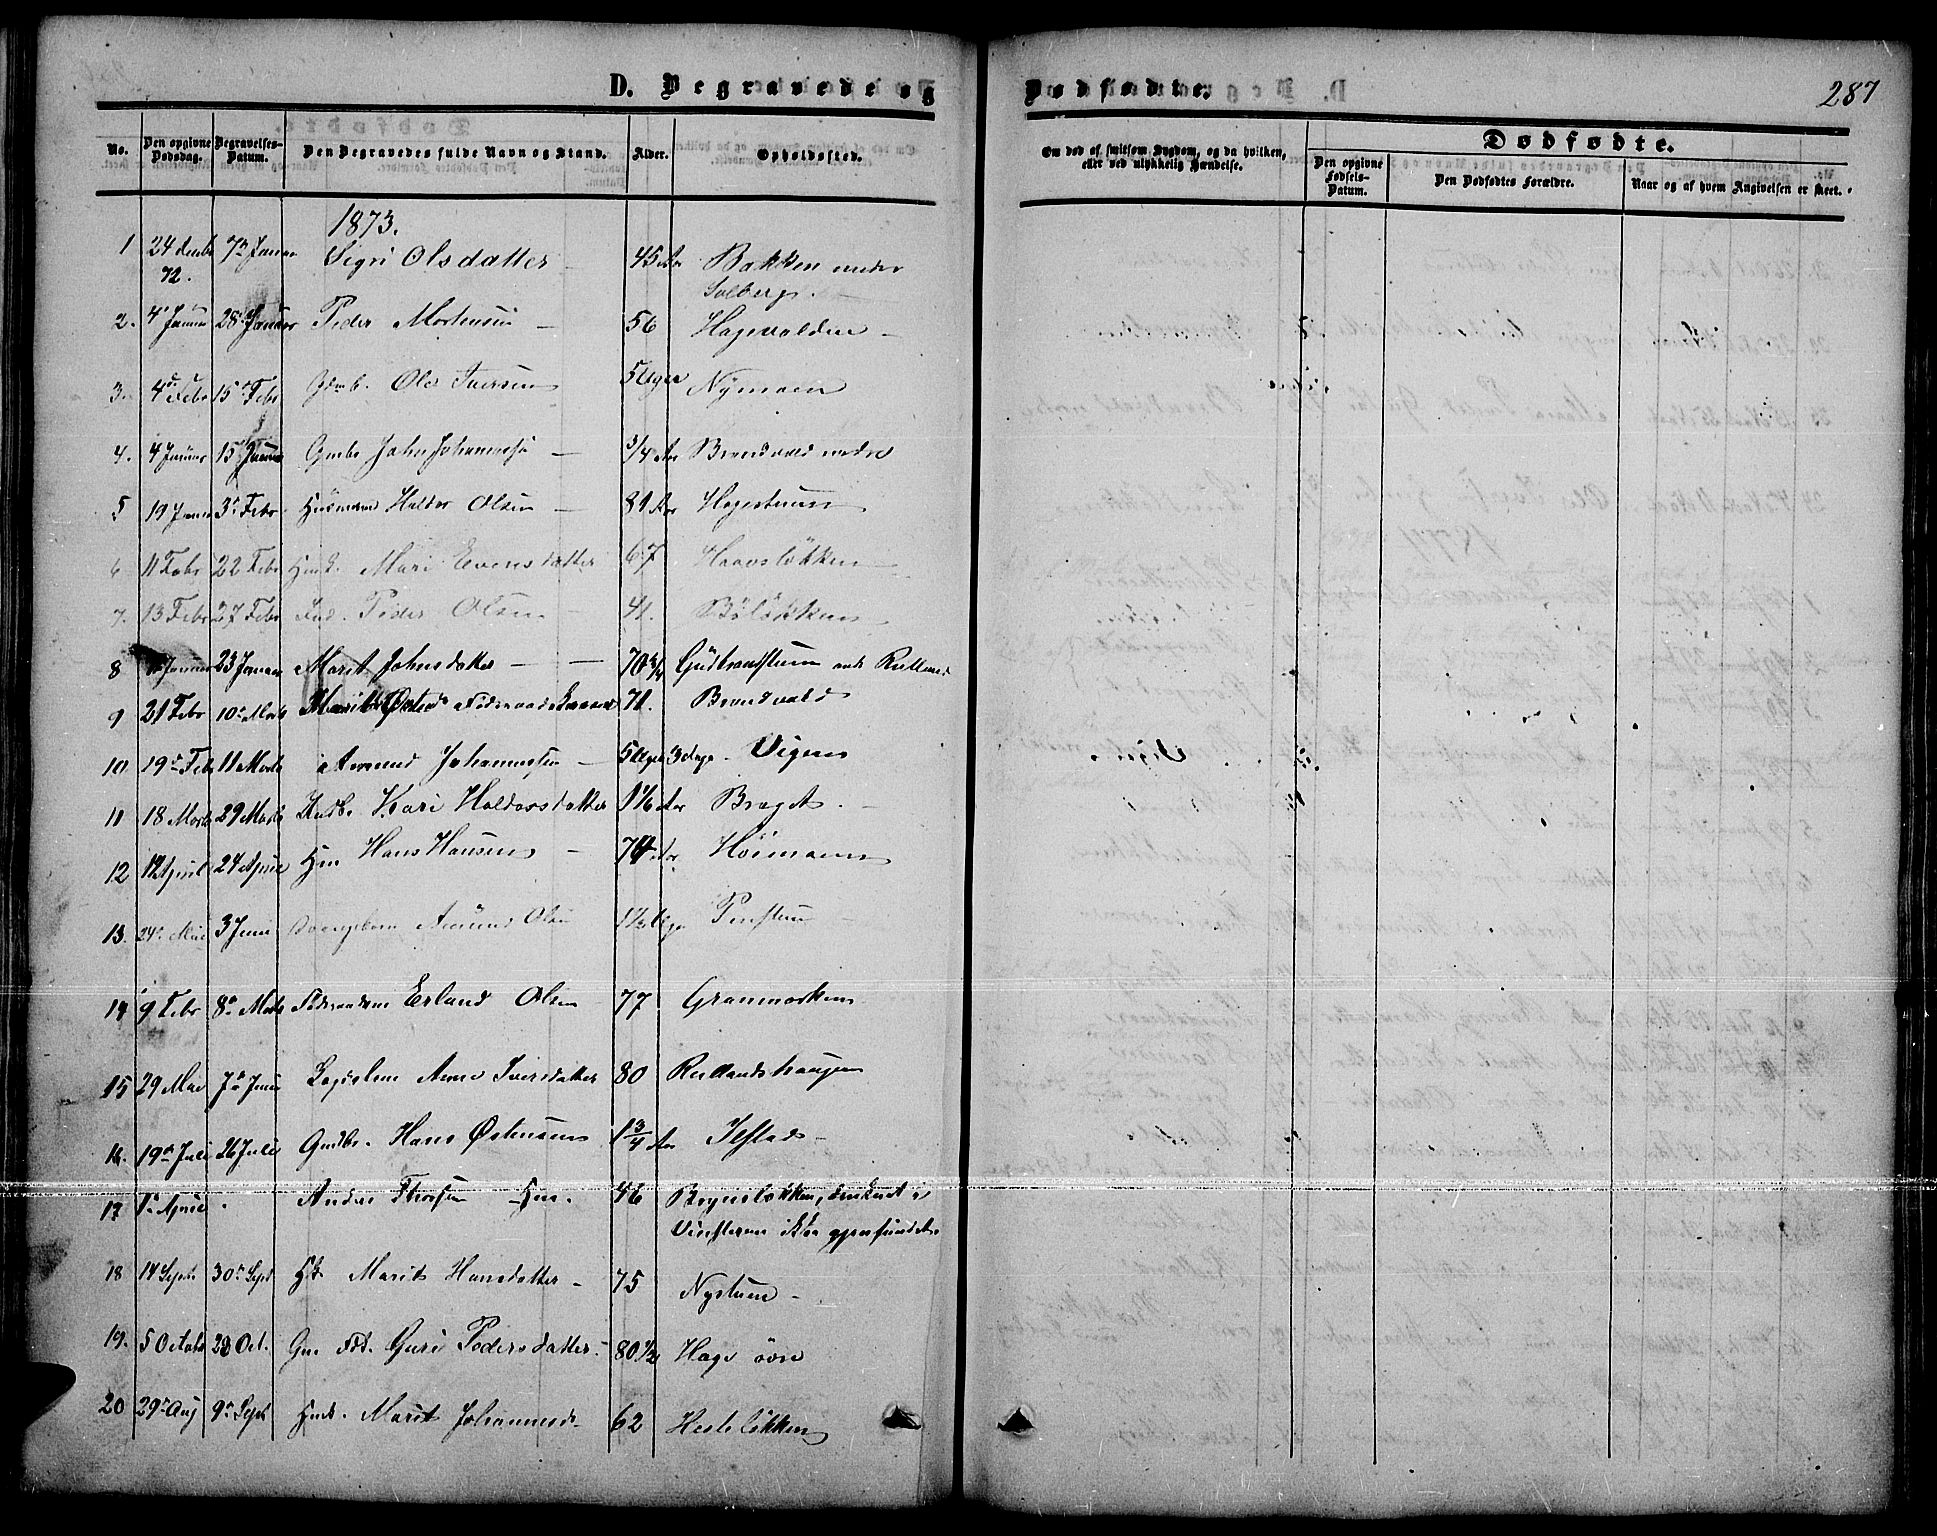 D. Begravede og Dødfødte.
287
No. Den opgivne Dødsdag. Begravelses-Datum. Den Begravedes fulde Navn og Stand. Alder. Opholdssted. Om død af smitsom Sygdom, og da hvilken, eller ved ulykkelig Hændelse. Dødfødte.
Den opgivne Fødsels-Datum. Den Dødfødtes Forældre. Naar og af hvem Angivelsen er skeet.
1873.
1 24 Decbr 72. 7de Januar Sigri Olsdatter 45 Aar Bakken under
Solberg.
2. 4 Januar 28 Januar Peder Mortensen 56 Hagevolden
3. 4de Febr 15 Febr Gdmb. Ole Iversen 5 Uger Nymoen
4. 4 Januar 15 Januar Gmbs John Johannessen 3/4 Aar Brendvold nedre
5 19 Januar 3 Febr Husmand Haldor Olsen 81 Aar Hagestuen
6 11 Febr 22 Febr Hmk. Mari Evensdatter 67 Haavsløkken
7. 13 Febr 27 Febr Ind. Peder Olsen 41. Bøløkken
8 Januar 23 Januar Marit Johnsdatter 70 3/4 Gudbrandstuen under Rolland
9 21 Febr 10 Marts Marit Føderaadskone 71. Brendvold
10. 19 Febr 11 Marts Amund Johannessen 5 Uger 3 Dage Vigen
11 18 Marts 29 Marts Kari Haldorsdatter 1 1/6 Aar Braget.
12 12 April 24 April Hm Hans Hansen 74 Aar Høimoen
13. 24 Mai 3 Juni Drengebarn Amund Olsen 1 1/2 Uge
14 9 Febr 8 Marts Føderaadsm Erland Olsen 77 Granmoeken
15 29 Mai 7 Juni Lægdslem Anne Iversdatter 80 Rollandshaugen
16. 19 Juli 26 Juli Gmdbr. Hans Østensen 1 3/4 Aar Ilstad
17 1 April Anders Thorsen Hm. 46 Brynsløkken, druknet i
Vinsteren ikke gjenfundet.
18 14 Septr 30 Sept Hk Marit Hansdatter 75 Nystuen
19. 5 October 23 Oct. Gm. Fdk. Guri Pedersdatter 80 1/2 Hage øvre
20 29 Aug 9 Sept Hmk. Marit Johannesd. 62 Hesteløkken